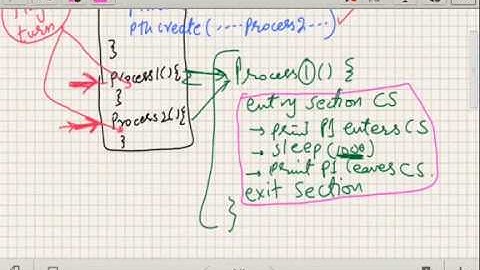 turn
pth create (----Process2---)
}
process1(){
}
process2(){
}
Process①() {
entry section CS
→ print P1 enters CS
→ sleep(1000)
→ print P1 leaves CS.
exit section
}